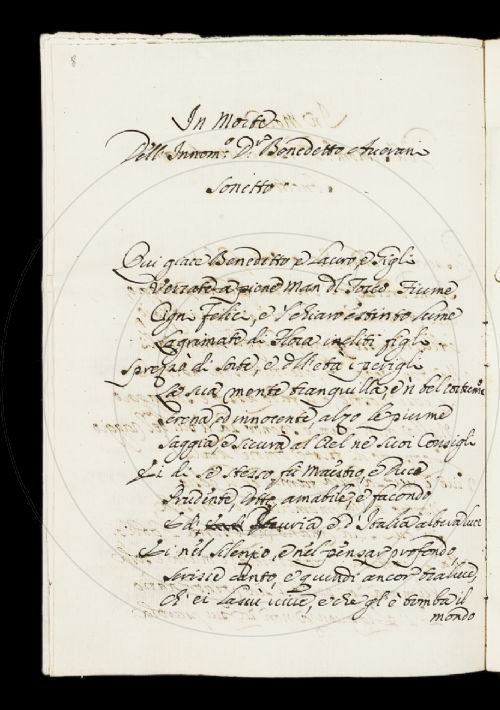 8
In Morte
Dell' Innom.º D.r Benedetto Averani
Sonetto
Qui giace Benedetto, e Lauro, e Gigli
Versate a piene man dl Tosco Fiume,
Ogn Felice, e Schiaro estinto lume
Lagramate di Flora incliti figli
Sprezzò di Sorte, e dll'età i perigli
La sua mente tranquilla, e 'n bel costume
Serena, ed innocente, alzò le piume
Saggia, e sicura al Ciel ne' suoi Consigli
Ei di se stesso fu Maestro, e Duce
Prudente, amabile, e facondo
E d'Italia altura luce
Ei nel silenzo, e nel pensar profondo,
Scrisse tanto, e quindi ancor traluce,
Ch' ei lassù vive, e che gl' è tomba il
mondo